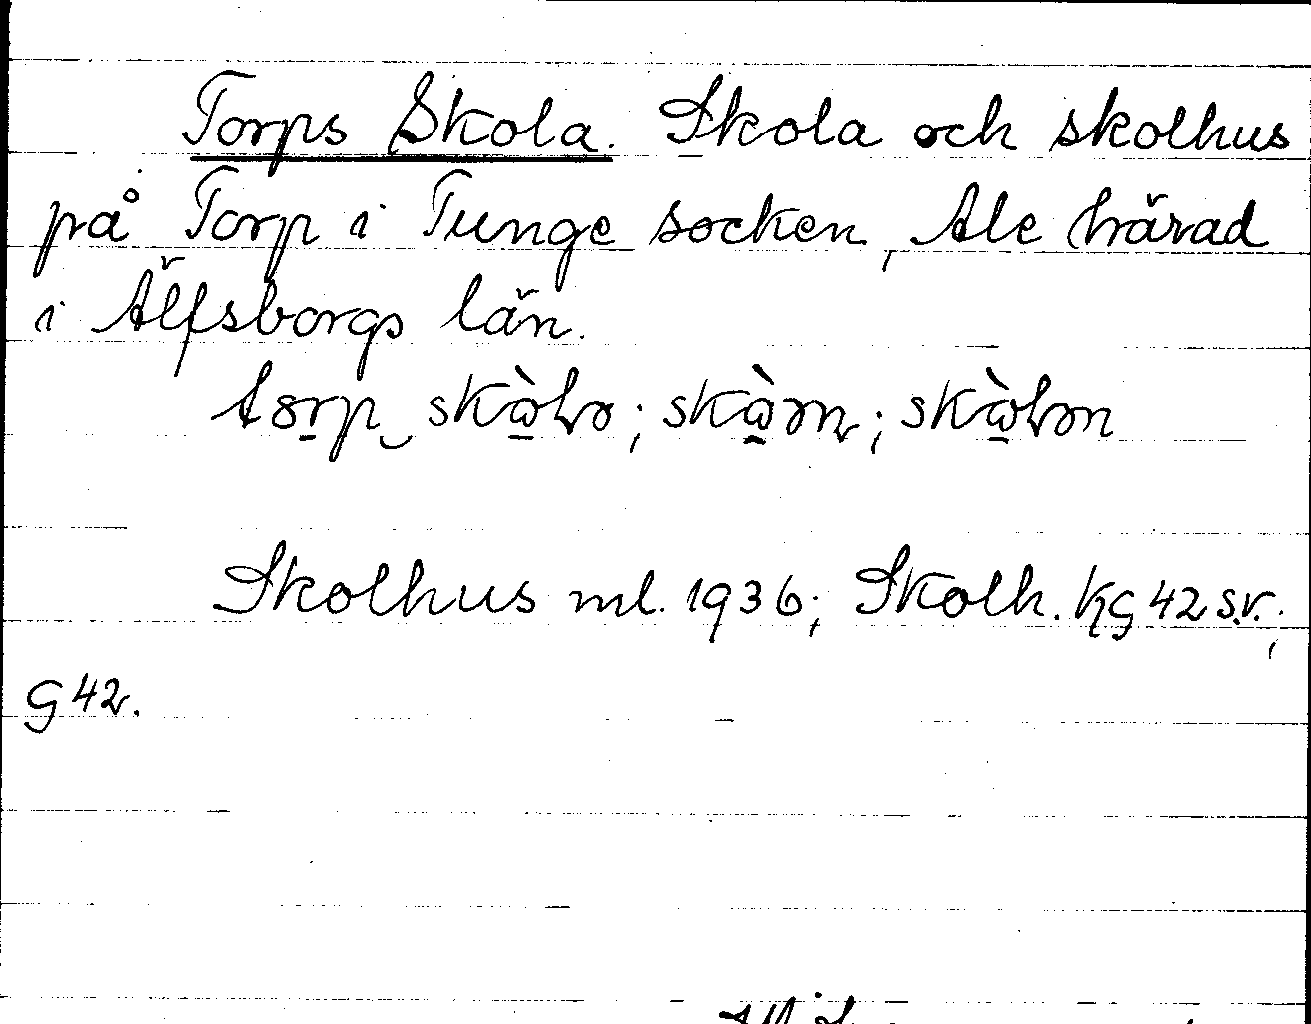 Torps Skola. Skola och skolhus
på Torp i Tunge socken, Ale härad
i Älfsborgs län.
torp skàlo; skàon; skàlon
Skolhus ml. 1936; Skolh. KG 42 s.v.;
G 42.